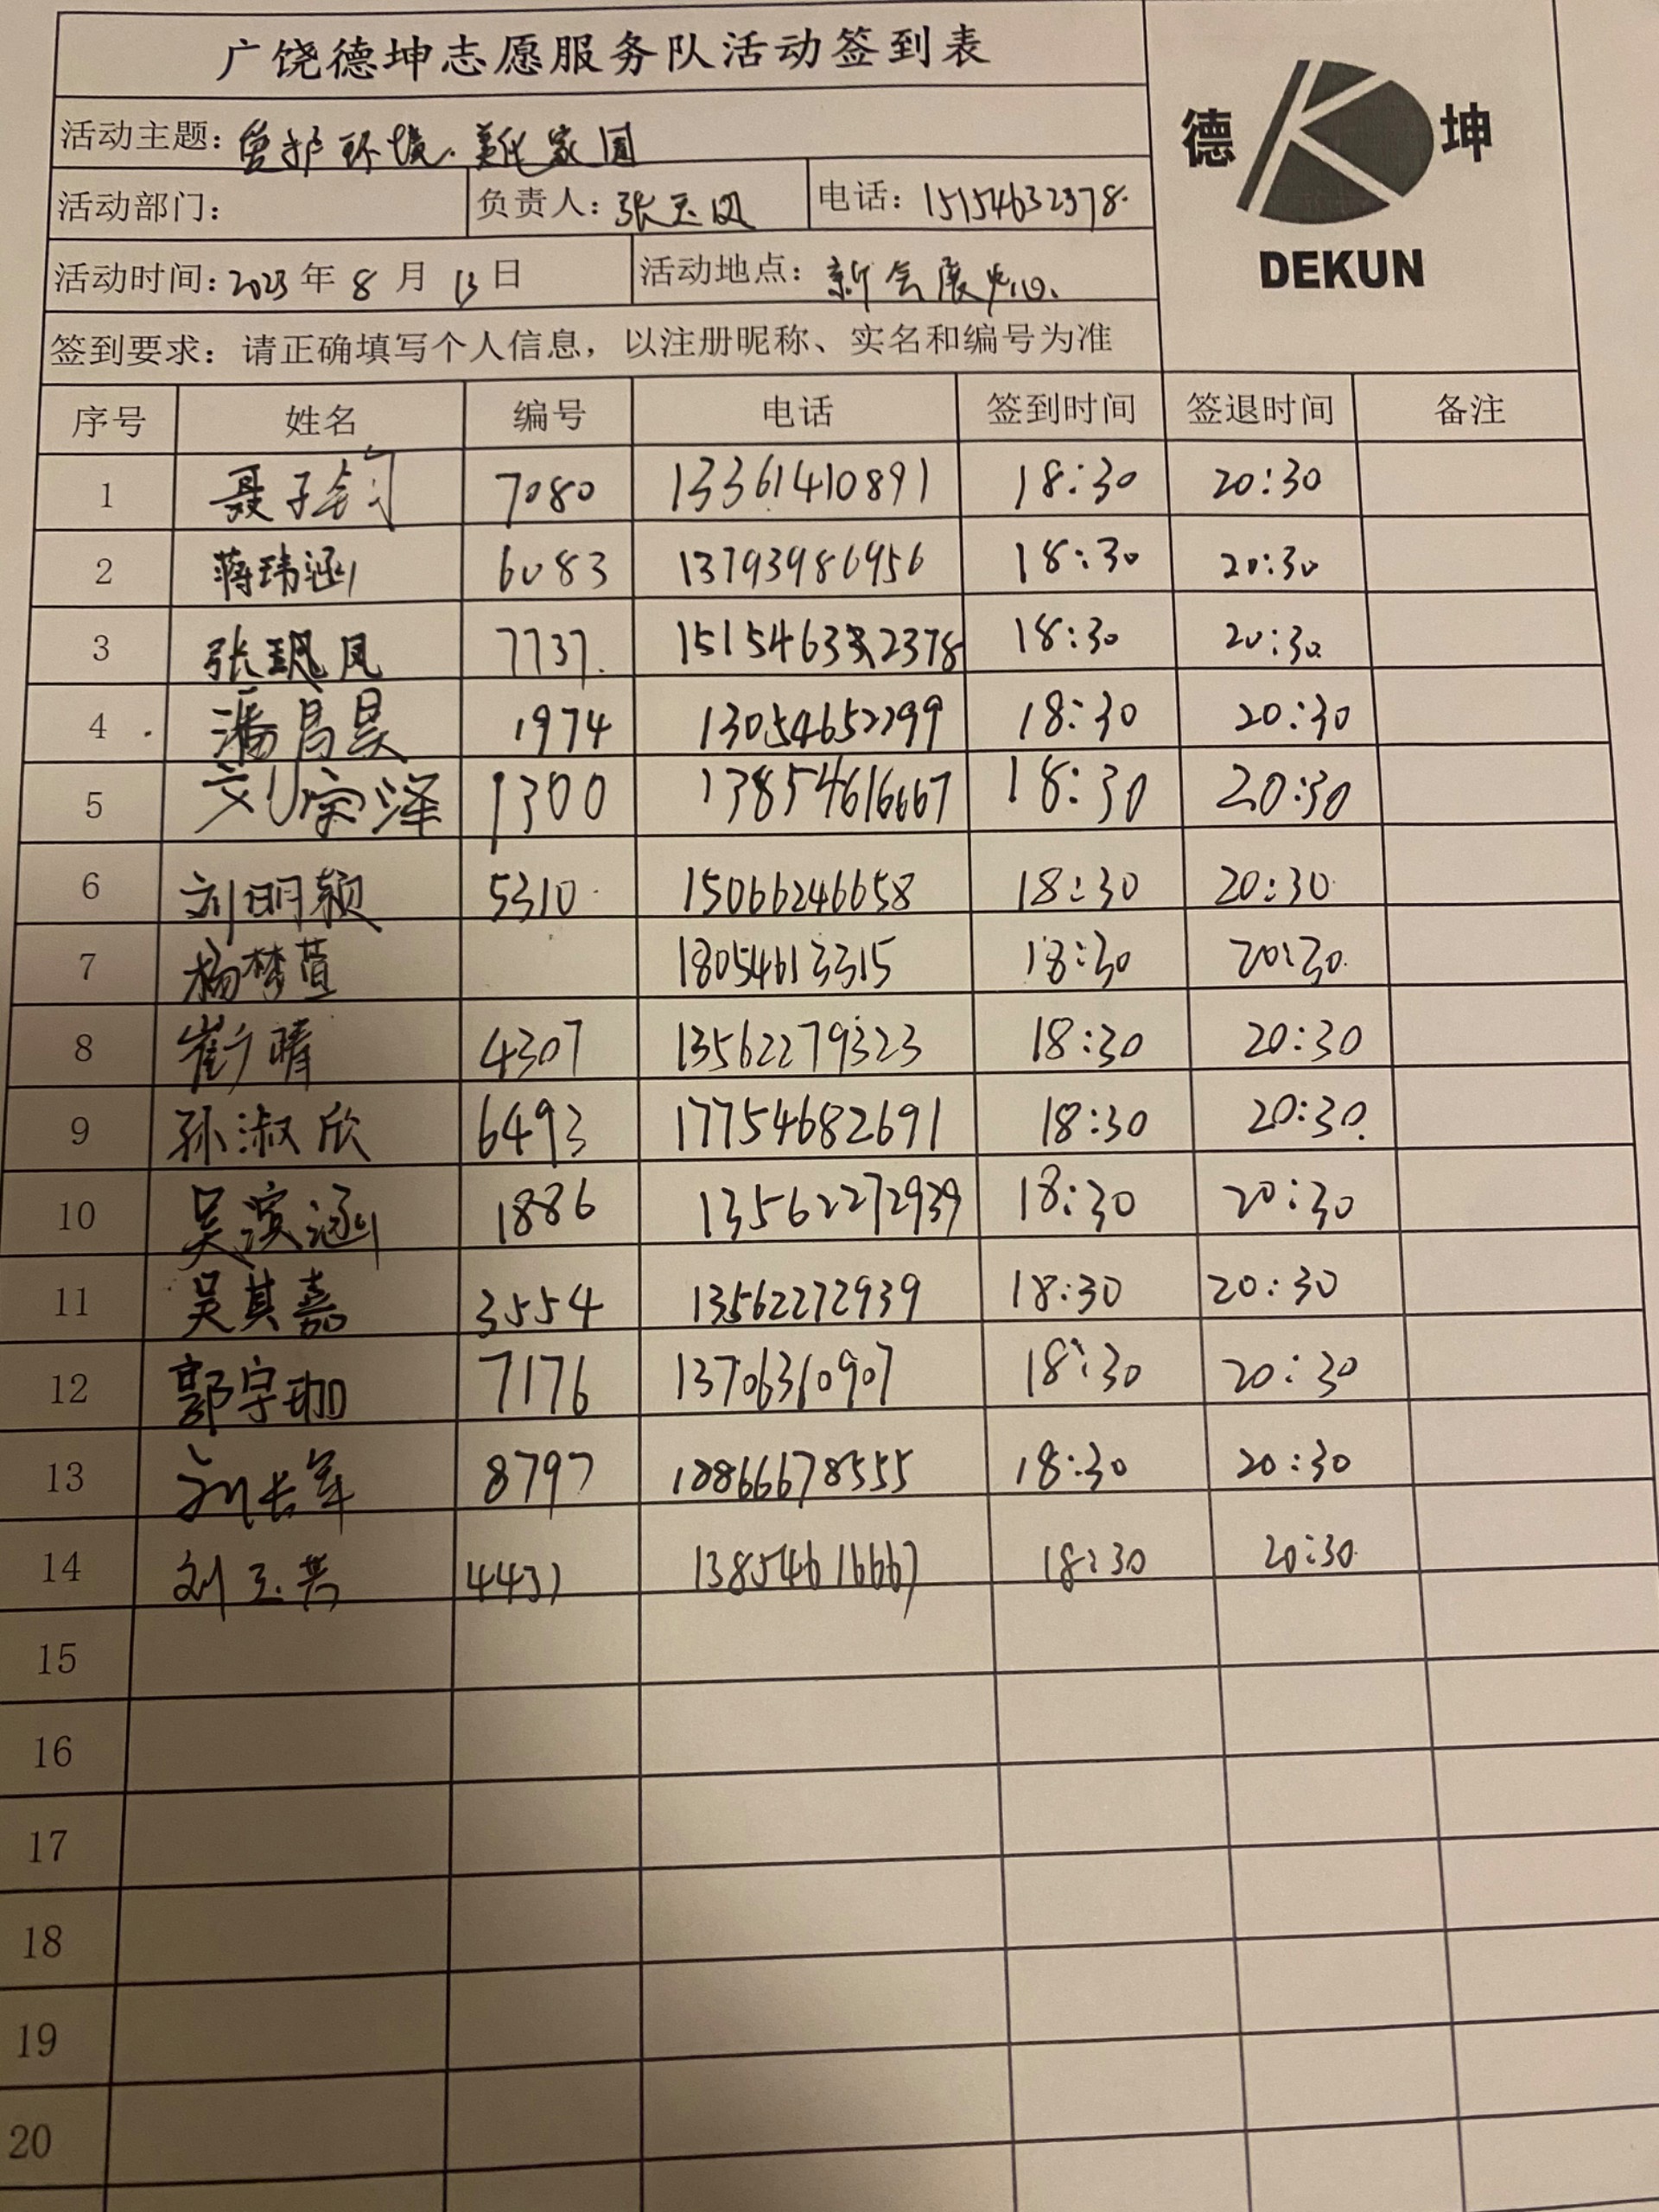 广饶德坤志愿服务队活动签到表
德 坤
DEKUN
活动主题: 爱护环境.美化家园
活动部门: 负责人: 张玉凤 电话: 15154632378.
活动时间: 2023 年 8 月 13 日 活动地点: 新会展中心.
签到要求: 请正确填写个人信息, 以注册昵称、实名和编号为准
序号 姓名 编号 电话 签到时间 签退时间 备注
1 聂子 7080 13361410891 18:30 20:30
2 蒋玮涵 6083 13793986956 18:30 20:30
3 张 凤 7737. 15154632378 18:30 20:30
4 潘昌昊 1974 13054652299 18:30 20:30
5 刘宗泽 1300 13854616667 18:30 20:30
6 刘明颖 5310 15066246658 18:30 20:30
7 杨梦萱 18054613315 18:30 20:30
8 崔 晴 4307 13562279323 18:30 20:30
9 孙淑欣 6493 17754682691 18:30 20:30
10 吴滨涵 1886 13562272939 18:30 20:30
11 吴其嘉 3554 13562272939 18:30 20:30
12 郭宇珈 7176 13706360907 18:30 20:30
13 刘长军 8797 18866678555 18:30 20:30
14 刘玉 4437 13854616667 18:30 20:30
15
16
17
18
19
20